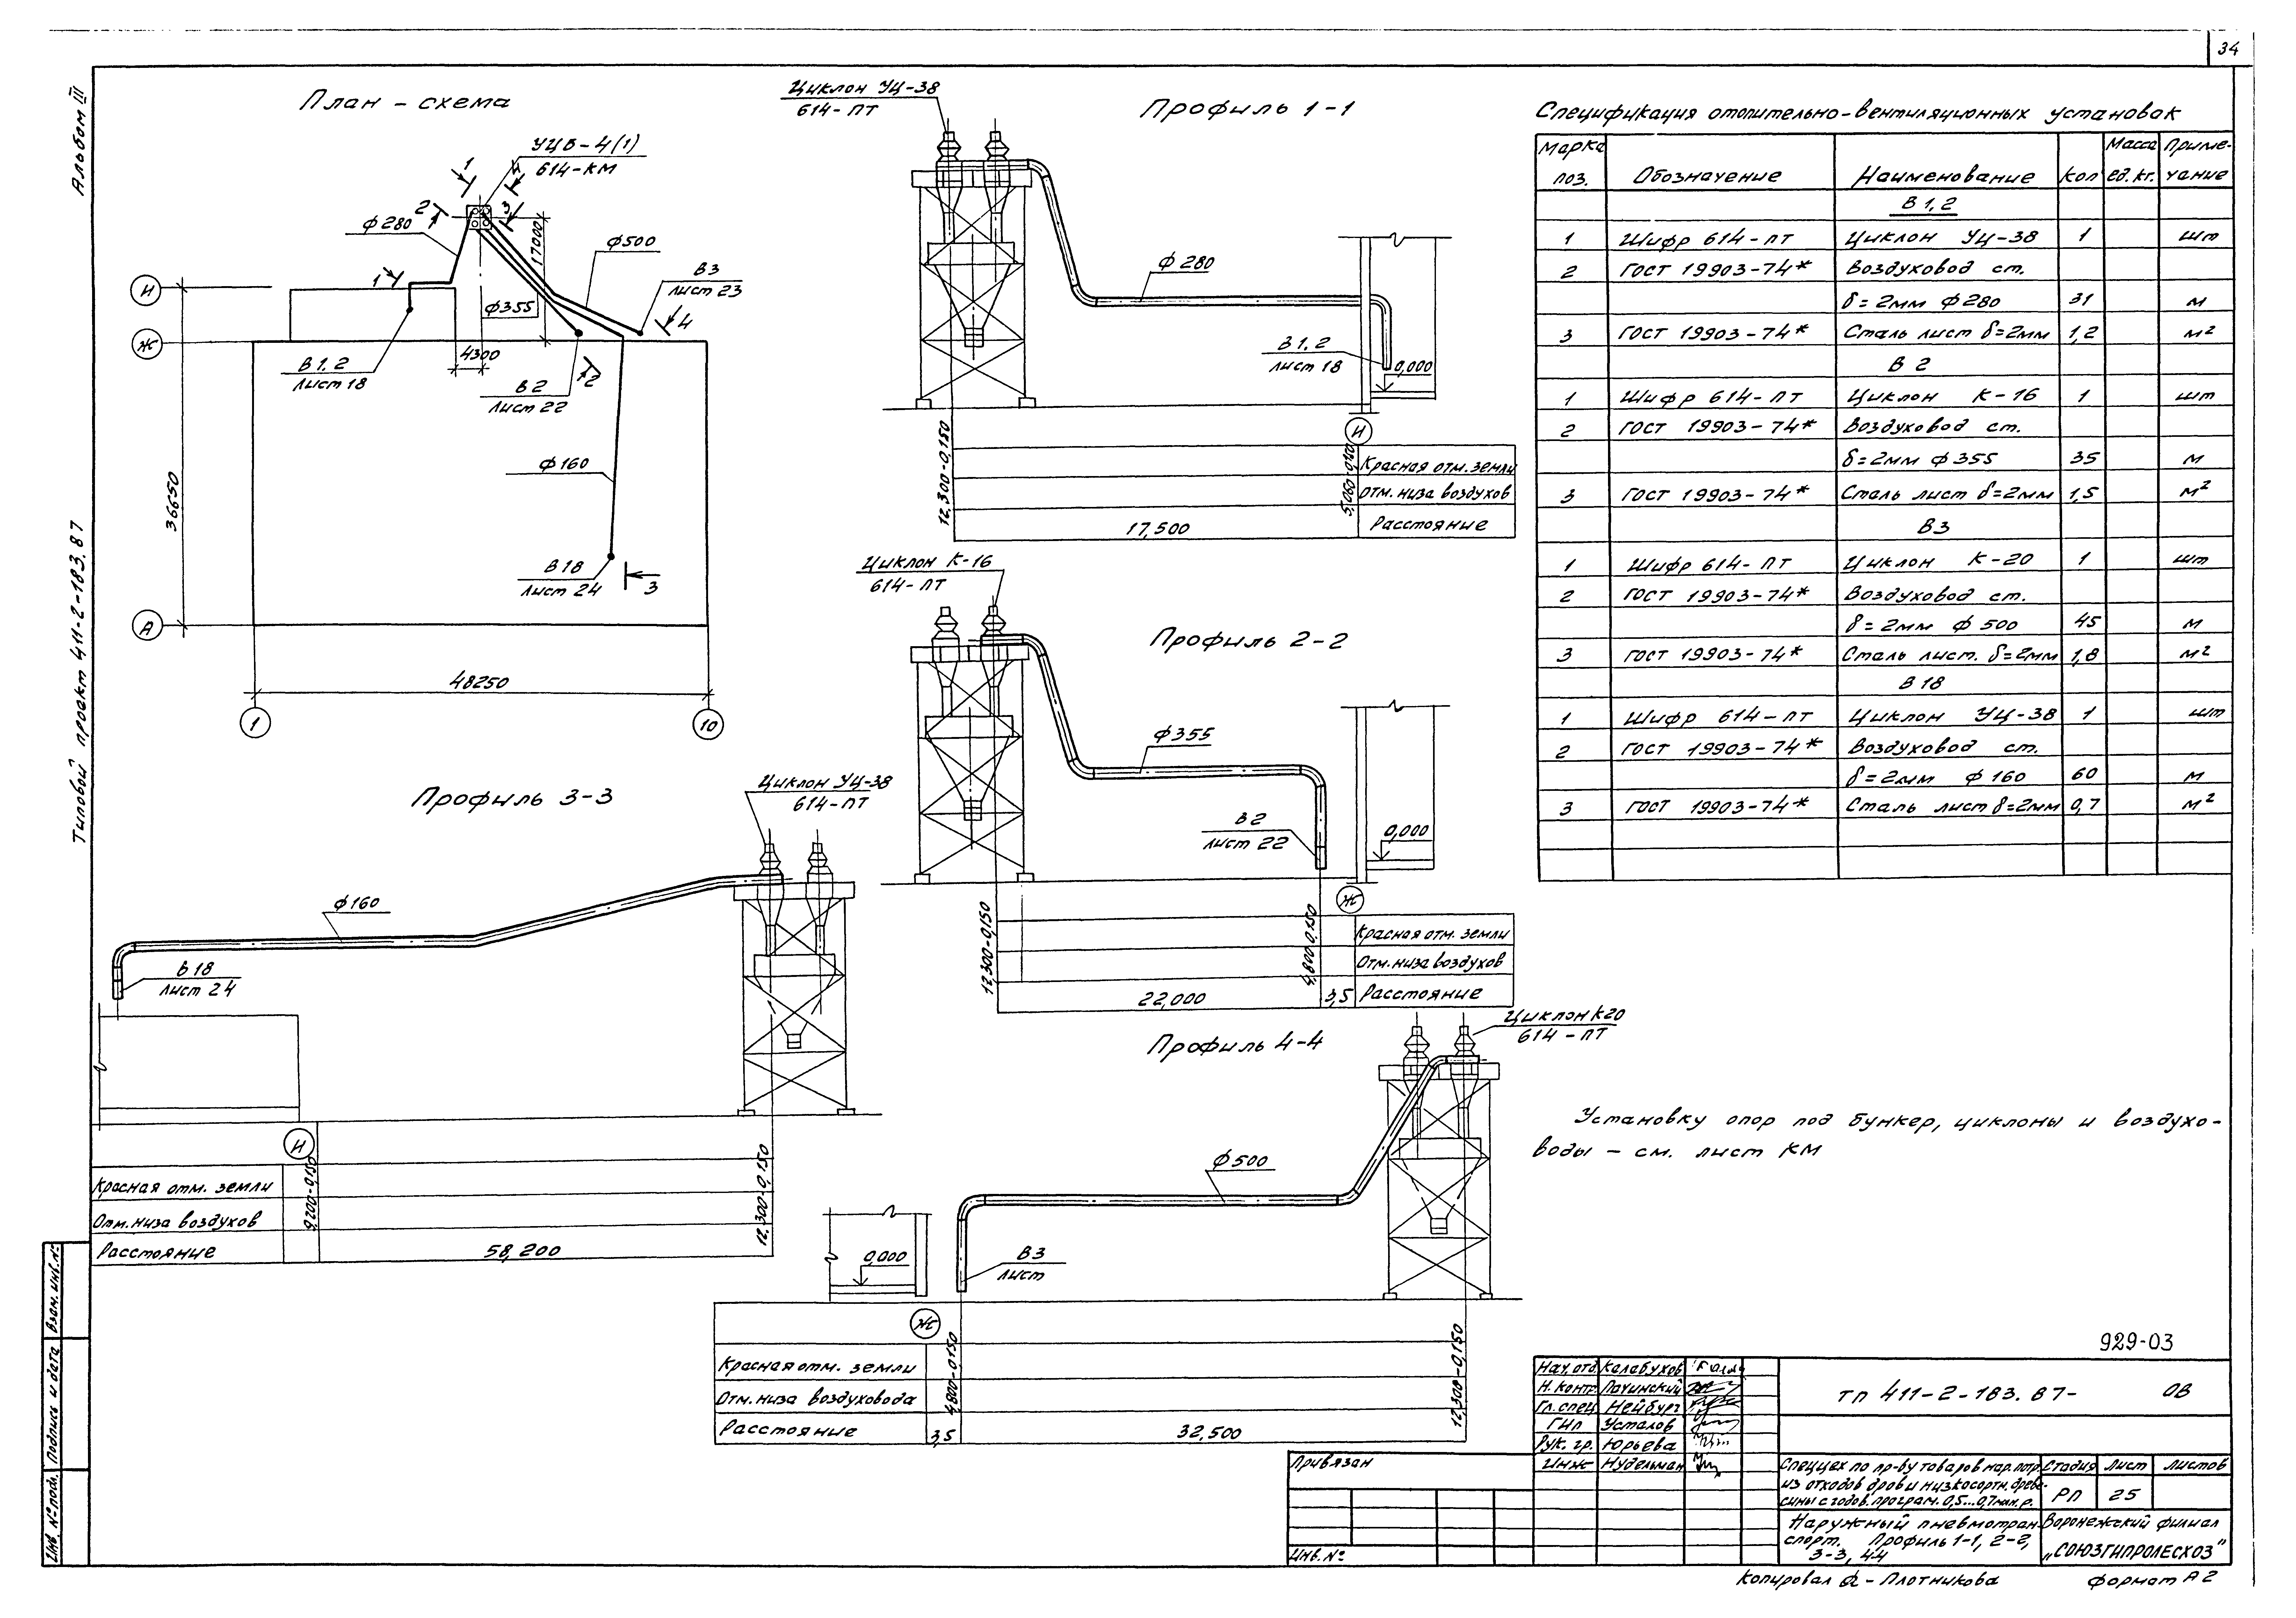 34
Альбом III
Типовой проект 411-2-183.87
План - схема
УЦВ-4(1)
614-КМ
1
2
3
ф280
17000
ф500
В3
Лист 23
1
4
И
Ж
ф355
4300
В1.2
Лист 18
В2
Лист 22
2
36650
ф160
В18
Лист 24
3
А
48250
1
10
Циклон УЦ-38
614-ПТ
Профиль 1-1
ф280
В1.2
Лист 18
0,000
И
12,300-0,150
5,060-0,180
Красная отм. земли
Отм. низа воздухов
17,500 Расстояние
Циклон К-16
614-ПТ
Профиль 2-2
ф355
В2
Лист 22
0,000
Ж
12,300-0,150
4,800-0,150
Красная отм. земли
Отм. низа воздухов
22,000 3,5 Расстояние
Профиль 3-3
Циклон УЦ-38
614-ПТ
ф160
В18
Лист 24
И
9,200-0,150
12,300-0,150
Красная отм. земли
Отм. низа воздухов
Расстояние 58,200
Профиль 4-4
Циклон К20
614-ПТ
ф500
0,000
В3
Лист
Ж
4,800-0,150
12,300-0,150
Красная отм. земли
Отм. низа воздуховода
Расстояние 3,5 32,500
Спецификация отопительно-вентиляционных установок
Марка поз. Обозначение Наименование Кол Масса ед. кг. Приме-чание
В1,2
1 Шифр 614-ПТ Циклон УЦ-38 1 шт
2 ГОСТ 19903-74* Воздуховод ст.
δ=2мм ф280 31 м
3 ГОСТ 19903-74* Сталь лист δ=2мм 1,2 м²
В2
1 Шифр 614-ПТ Циклон К-16 1 шт
2 ГОСТ 19903-74* Воздуховод ст.
δ=2мм ф355 35 м
3 ГОСТ 19903-74* Сталь лист δ=2мм 1,5 м²
В3
1 Шифр 614-ПТ Циклон К-20 1 шт
2 ГОСТ 19903-74* Воздуховод ст.
δ=2мм ф500 45 м
3 ГОСТ 19903-74* Сталь лист. δ=2мм 1,8 м²
В18
1 Шифр 614-ПТ Циклон УЦ-38 1 шт
2 ГОСТ 19903-74* Воздуховод ст.
δ=2мм ф160 60 м
3 ГОСТ 19903-74* Сталь лист δ=2мм 0,7 м²
Установку опор под бункер, циклоны и воздухо-
воды - см. лист КМ
929-03
Нач. отд. Калабухов
Н. контр. Лачинский
Гл. спец Нейбург
ГИП Усталов
Рук. гр. Юрьева
Инж Нудельман
ТП 411-2-183.87- ОВ
Спеццех по пр-ву товаров нар. потр.
из отходов дров и низкосортн. древе-
сины с годов. програм. 0,5...0,7 млн. р.
Стадия Лист Листов
РП 25
Наружный пневмотран-
спорт. Профиль 1-1, 2-2,
3-3, 4-4
Воронежский филиал
„СОЮЗГИПРОЛЕСХОЗ"
Привязан
Инв. №
Инв. № подл. Подпись и дата Взам. инв. №
Копировал - Плотникова
Формат А2